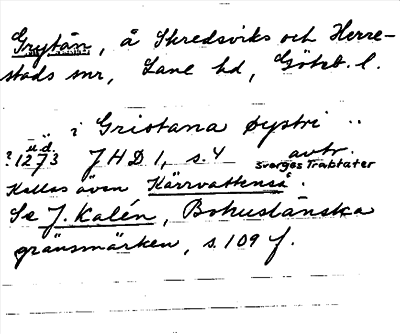 Grytån, å Skredsviks och Herre-
stads snr, Lane hd, Göteb. l.
i Griotana øystri ..
u.d.
?1273 JHD 1, s.4 avtr.
Sverges Traktater
Kallas även Kärrvattenså.
Se J. Kalén, Bohuslänska
gränsmärken, s.109 f.